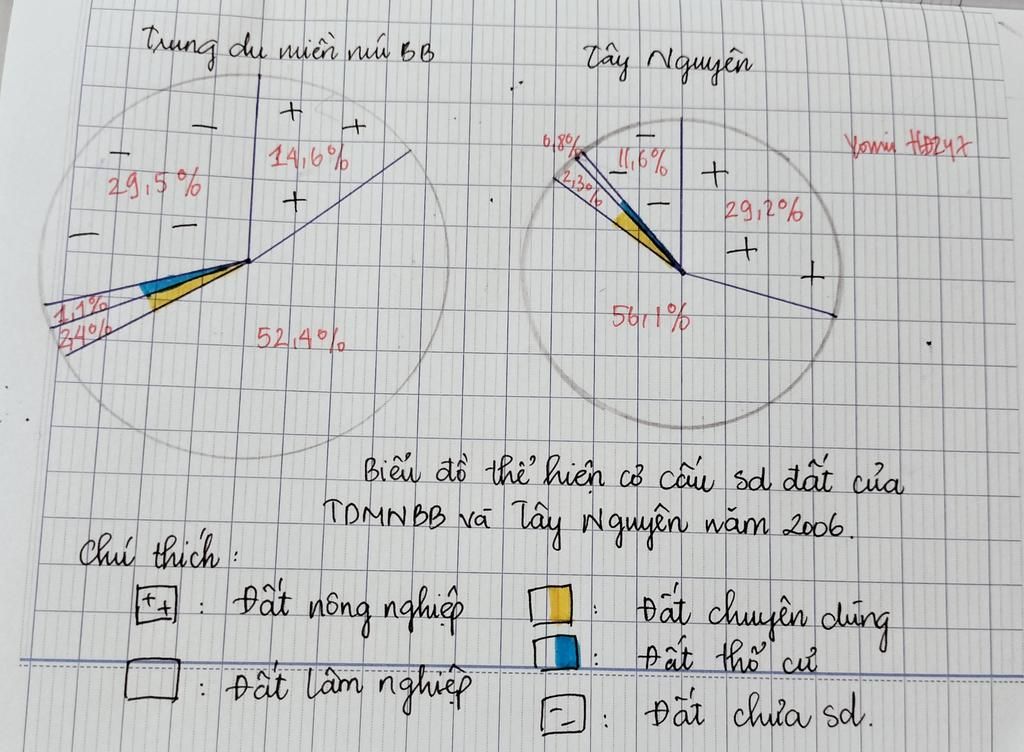 Trung du miền núi BB
Tây Nguyên
Yomii HĐ247
14,6%
29,5%
1,1%
2,4%
52,4%
0,8%
2,3%
11,6%
29,2%
56,1%
Biểu đồ thể hiện cơ cấu sd đất của
TDMNBB và Tây Nguyên năm 2006.
Chú thích:
++ : Đất nông nghiệp
: Đất chuyên dùng
: Đất thổ cư
: Đất lâm nghiệp
-- : Đất chưa sd.